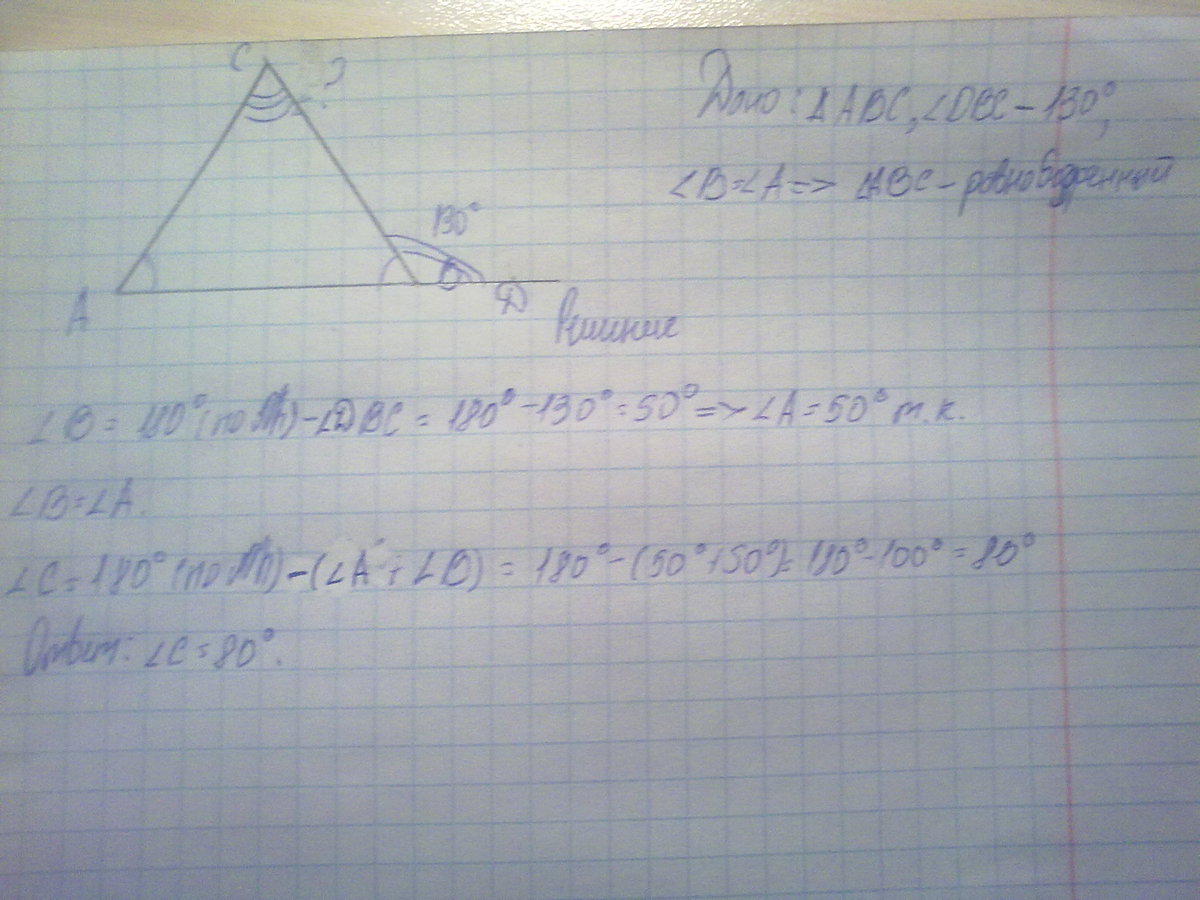 C ?
Дано: ΔABC, ∠DBC - 130°,
∠B=∠A => ΔABC - равнобедренный
130°
A B D
Решение
∠B = 180° (по) - ∠DBC = 180° - 130° = 50° => ∠A = 50° т.к.
∠B=∠A.
∠C = 180° (по) - (∠A + ∠B) = 180° - (50°+50°)= 180° - 100° = 80°
Ответ: ∠C = 80°.